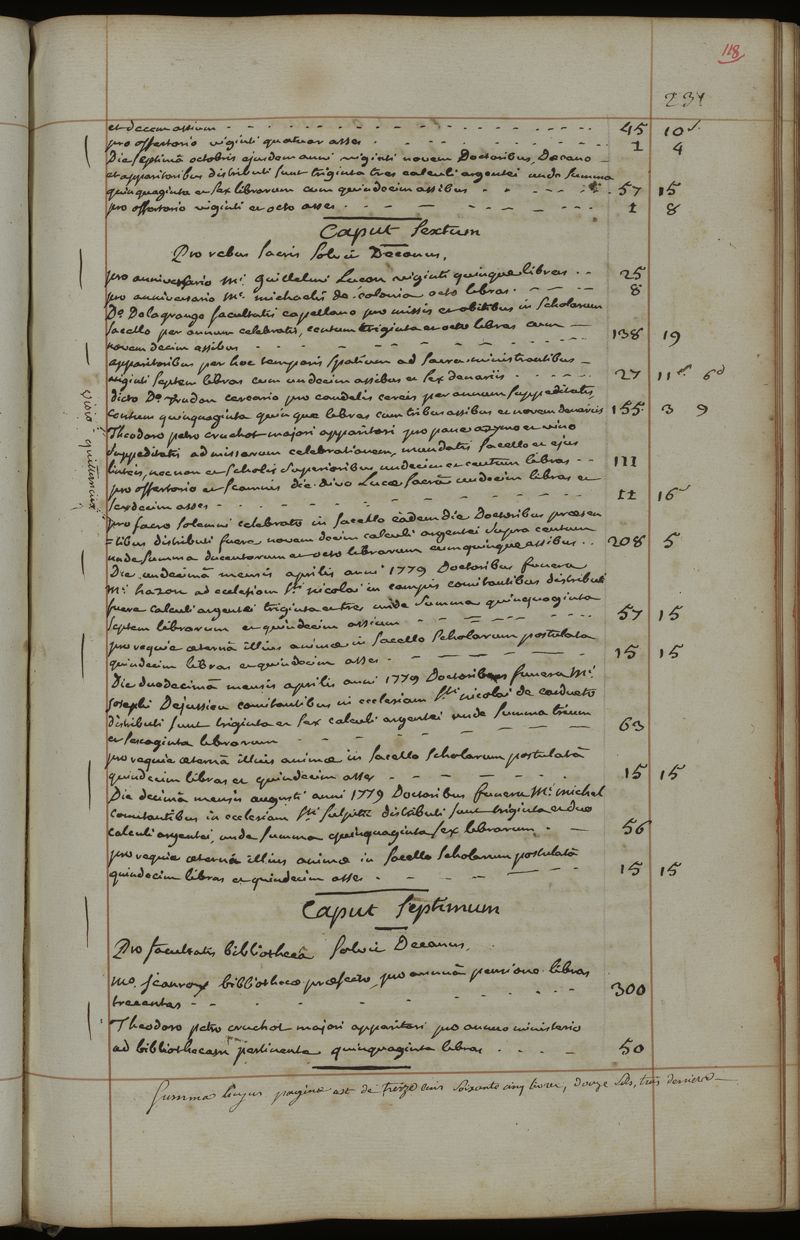 118
231
et decem assium - - - 45 10ˢ
pro offertorio viginti quatuor asses - - - 1 4
Die septimâ octobris ejusdem anni viginti novem Doctoribus, Decano
et apparitoribus distributi sunt triginta tres calculi argentei unde summa
quinquaginta et sex librarum cum quindecim assibus - - - 57 15
pro offertorio viginti et octo asses - - - 1 8
Caput Sextum
Pro rebus sacris solvit Decanus.
pro anniversario Mⁱ Guillelmi Lucon viginti quinque libras - - 25
pro anniversario Mⁱ michaelis de colonia octo libras - - - 8
Dº Delagrange facultatis capellano pro missis et obitibus in Scholarum
sacello per annum celebratis, centum triginta et octo libras cum
novem decim assibus - - - 138 19
apparitoribus per hoc temporis spatium ad sacra ministrantibus
viginti septem libras cum undecim assibus et sex denariis - - - 27 11ˢ 6ᵈ
dicto Dº Prudon cereario pro candelis cereis per annum suppeditatis
centum quinquaginta quinque libras cum tribus assibus et novem denariis 155 3 9
vidi quitancias
Theodoro petro cruchot majori apparitori pro pane azymo et vino
suppeditatis ad missarum celebrationem, mundatis sacello et ejus
linteis, necnon et scholis superioribus undecim et centum libras - - 111
pro offertorio et scamnis die divo Lucæ sacrâ undecim libras et
sexdecim asses - - - 11 16ˢ
pro sacro solemni celebrato in sacello eâdem die Doctoribus præsen
=tibus distributi fuere novem decim calculi argentei supra centum
unde summa ducentorum et octo librarum cum quinque assibus - - 208 5
Die undecimâ mensis aprilis anni 1779 Doctoribus funera
Mⁱ hazon ad ecclesiam Sᵗⁱ nicolai in campis comitantibus distributi
fuere calculi argentei triginta et tres unde summa quinquaginta
septem librarum et quindecim assium - - - 57 15
pro requie æternâ illius animæ in sacello Scholarum postulatâ
quindecim libras et quindecim asses - - - 15 15
Die duodecimâ mensis aprilis anni 1779 Doctoribus funera Mⁱ
Josephi Dejussieu comitantibus in ecclesiam Sᵗⁱ nicolai de cardueto
distributi sunt triginta et sex calculi argentei unde summa trium
et sexaginta librarum - - - 63
pro requie æternâ illius animæ in sacello Scholarum postulatâ
quindecim libras et quindecim asses - - - 15 15
Die decimâ mensis augusti anni 1779 Doctoribus funera Mⁱ michel
comitantibus in ecclesiam Sᵗⁱ Sulpitii distributi sunt triginta et duo
calculi argentei, unde summa quinquaginta sex librarum - - 56
pro requie æternâ illius animæ in sacello Scholarum postulatâ
quindecim libras et quindecim asses - - - 15 15
Caput Septimum
Pro facultatis bibliothecâ solvit Decanus.
Mº Jeanroy bibliothecæ præfecto, pro annuâ pensione libras
trecentas - - - 300
Theodoro petro cruchot majori apparitori pro annuo ministerio
ad bibliothecam pertinente quinquaginta libras - - - 50
Summa hujus paginæ est de treize cens soixante cinq livres, douze sols, trois deniers